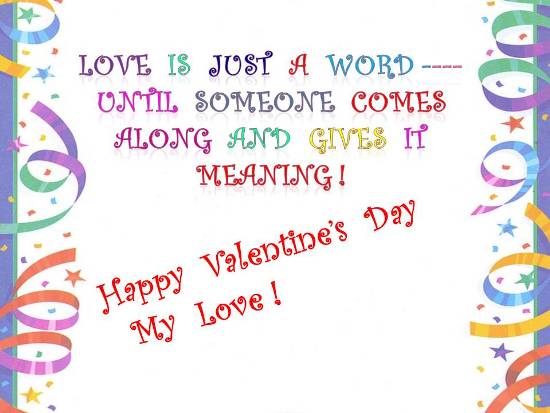 LOVE IS JUST A WORD----
UNTIL SOMEONE COMES
ALONG AND GIVES IT
MEANING!
Happy Valentine's Day
My Love!